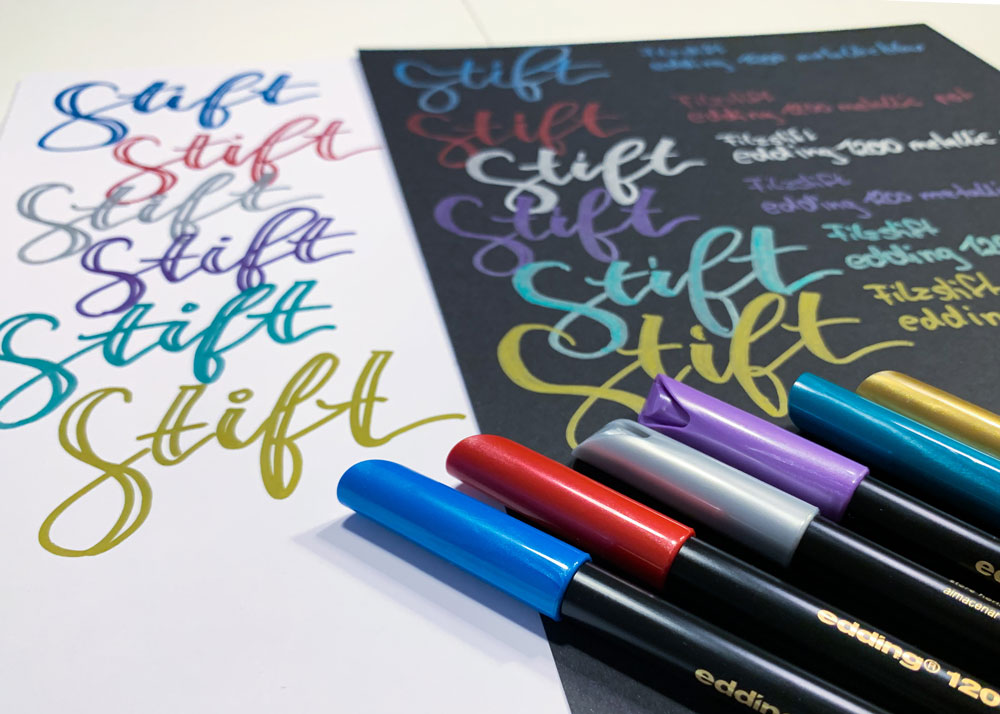 Stift
Stift
Stift
Stift
Stift
Stift
Stift
Filzstift
edding 1200 metallic blau
Stift
Filzstift
edding 1200 metallic rot
Stift
Filzstift
edding 1200 metallic
Stift
Filzstift
edding 1200 metallic
Stift
Filzstift
edding 120
Stift
Filzstift
eddin
edding
edding® 120
almacenar
ed